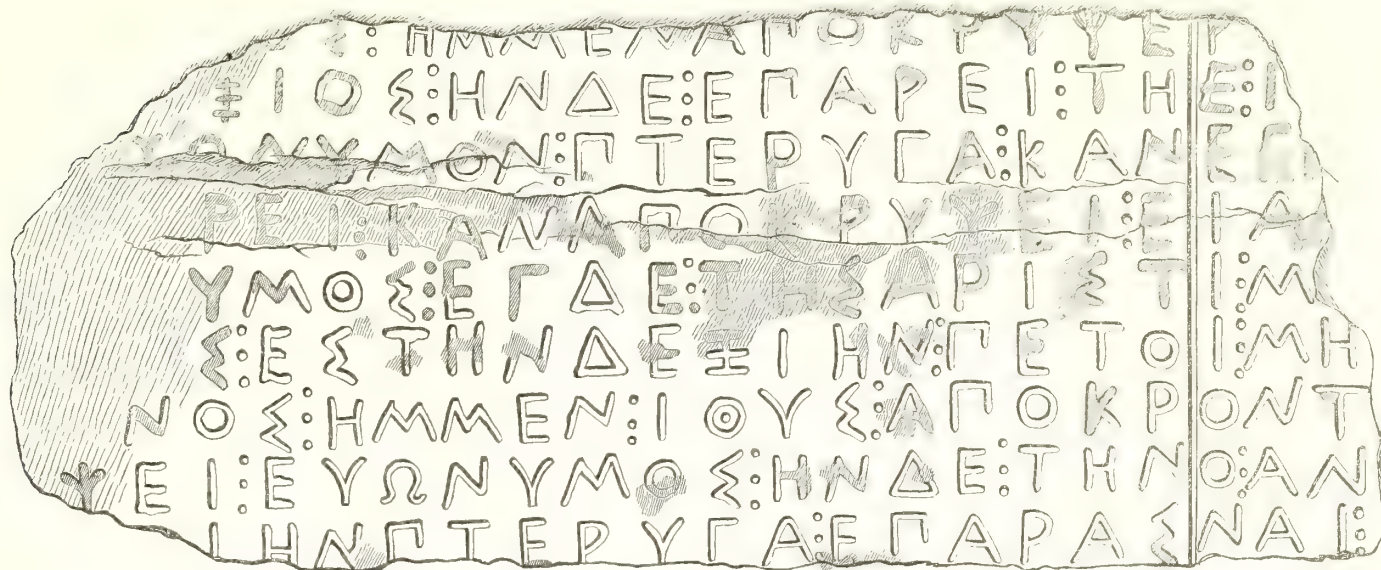 Σ⁝ΗΜΜΕΝΑΠΟΚΡΥΨΕΙ
ΞΙΟΣ⁝ΗΝΔΕ⁝ΕΠΑΡΕΙ⁝ΤΗ Ε⁝Ι
ΥΩΝΥΜΟΝ⁝ΠΤΕΡΥΓΑ⁝ΚΑΝ ΕΠ
ΡΕΙ⁝ΚΑΝΑΠΟΚΡΥΨΕΙ⁝Ε ΙΑ
ΥΜΟΣ⁝ΕΓΔΕ⁝ΤΗΣΑΡΙΣΤ Ι⁝Μ
Σ⁝ΕΣΤΗΝΔΕΞΙΗΝ⁝ΠΕΤΟ Ι⁝ΜΗ
ΝΟΣ⁝ΗΜΜΕΝ⁝ΙΘΥΣ⁝ΑΠΟΚΡ ΟΝΤ
ΨΕΙ⁝ΕΥΩΝΥΜΟΣ⁝ΗΝΔΕ⁝ΤΗΝ Ο⁝ΑΝ
ΙΗΝΠΤΕΡΥΓΑ⁝ΕΠΑΡΑΣ ΝΑΙ⁝